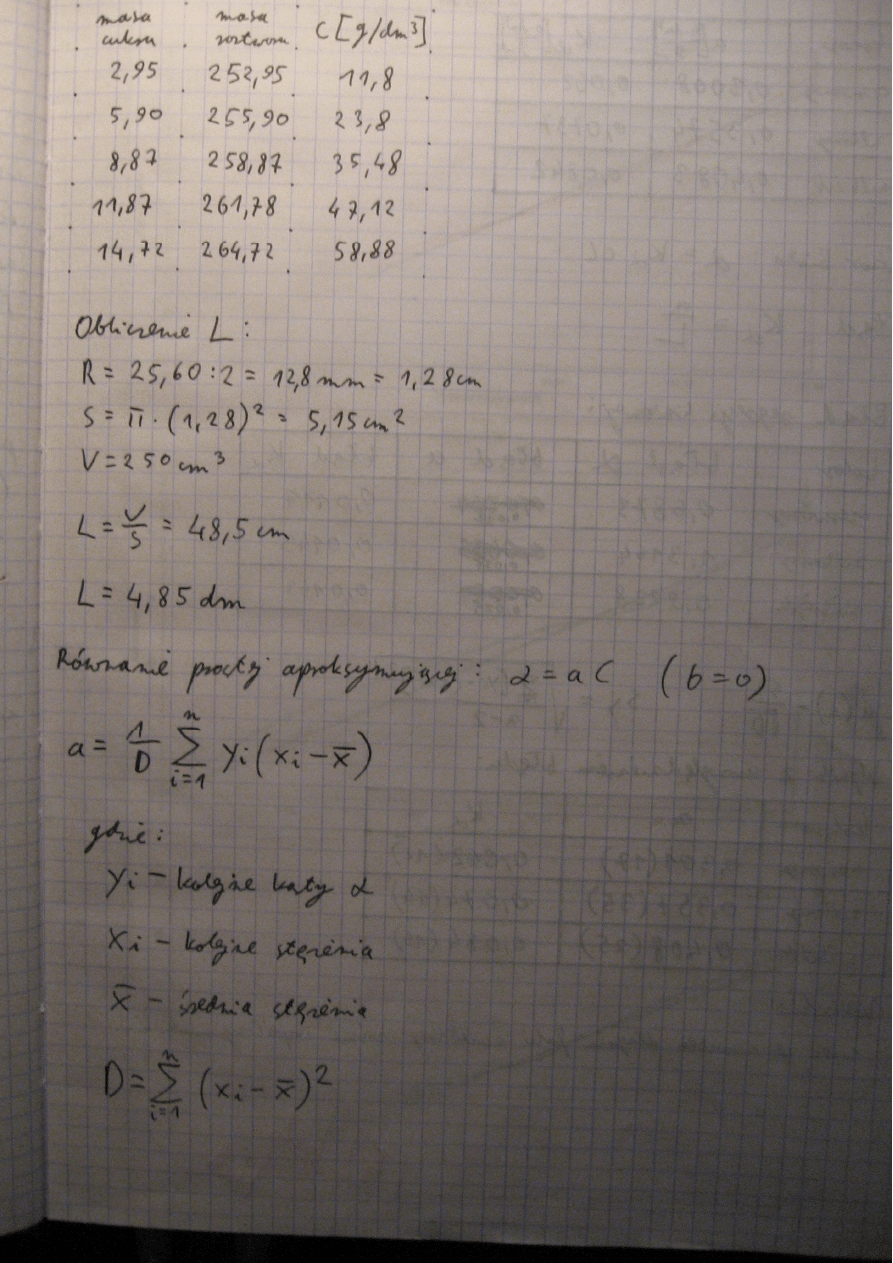 masa cukru masa roztworu C [g/dm³]
2,95 252,95 11,8
5,90 255,90 23,8
8,87 258,87 35,48
11,87 261,78 47,12
14,72 264,72 58,88
Obliczenie L:
R = 25,60 : 2 = 12,8 mm = 1,28 cm
S = π · (1,28)² = 5,15 cm²
V = 250 cm³
L = V/S = 48,5 cm
L = 4,85 dm
Równanie prostej aproksymującej: α = a C (b = 0)
a = 1/D ∑_{i=1}^{n} yi (xi − x̄)
gdzie:
yi – kolejne kąty α
xi – kolejne stężenia
x̄ – średnia stężenia
D = ∑_{i=1}^{n} (xi − x̄)²